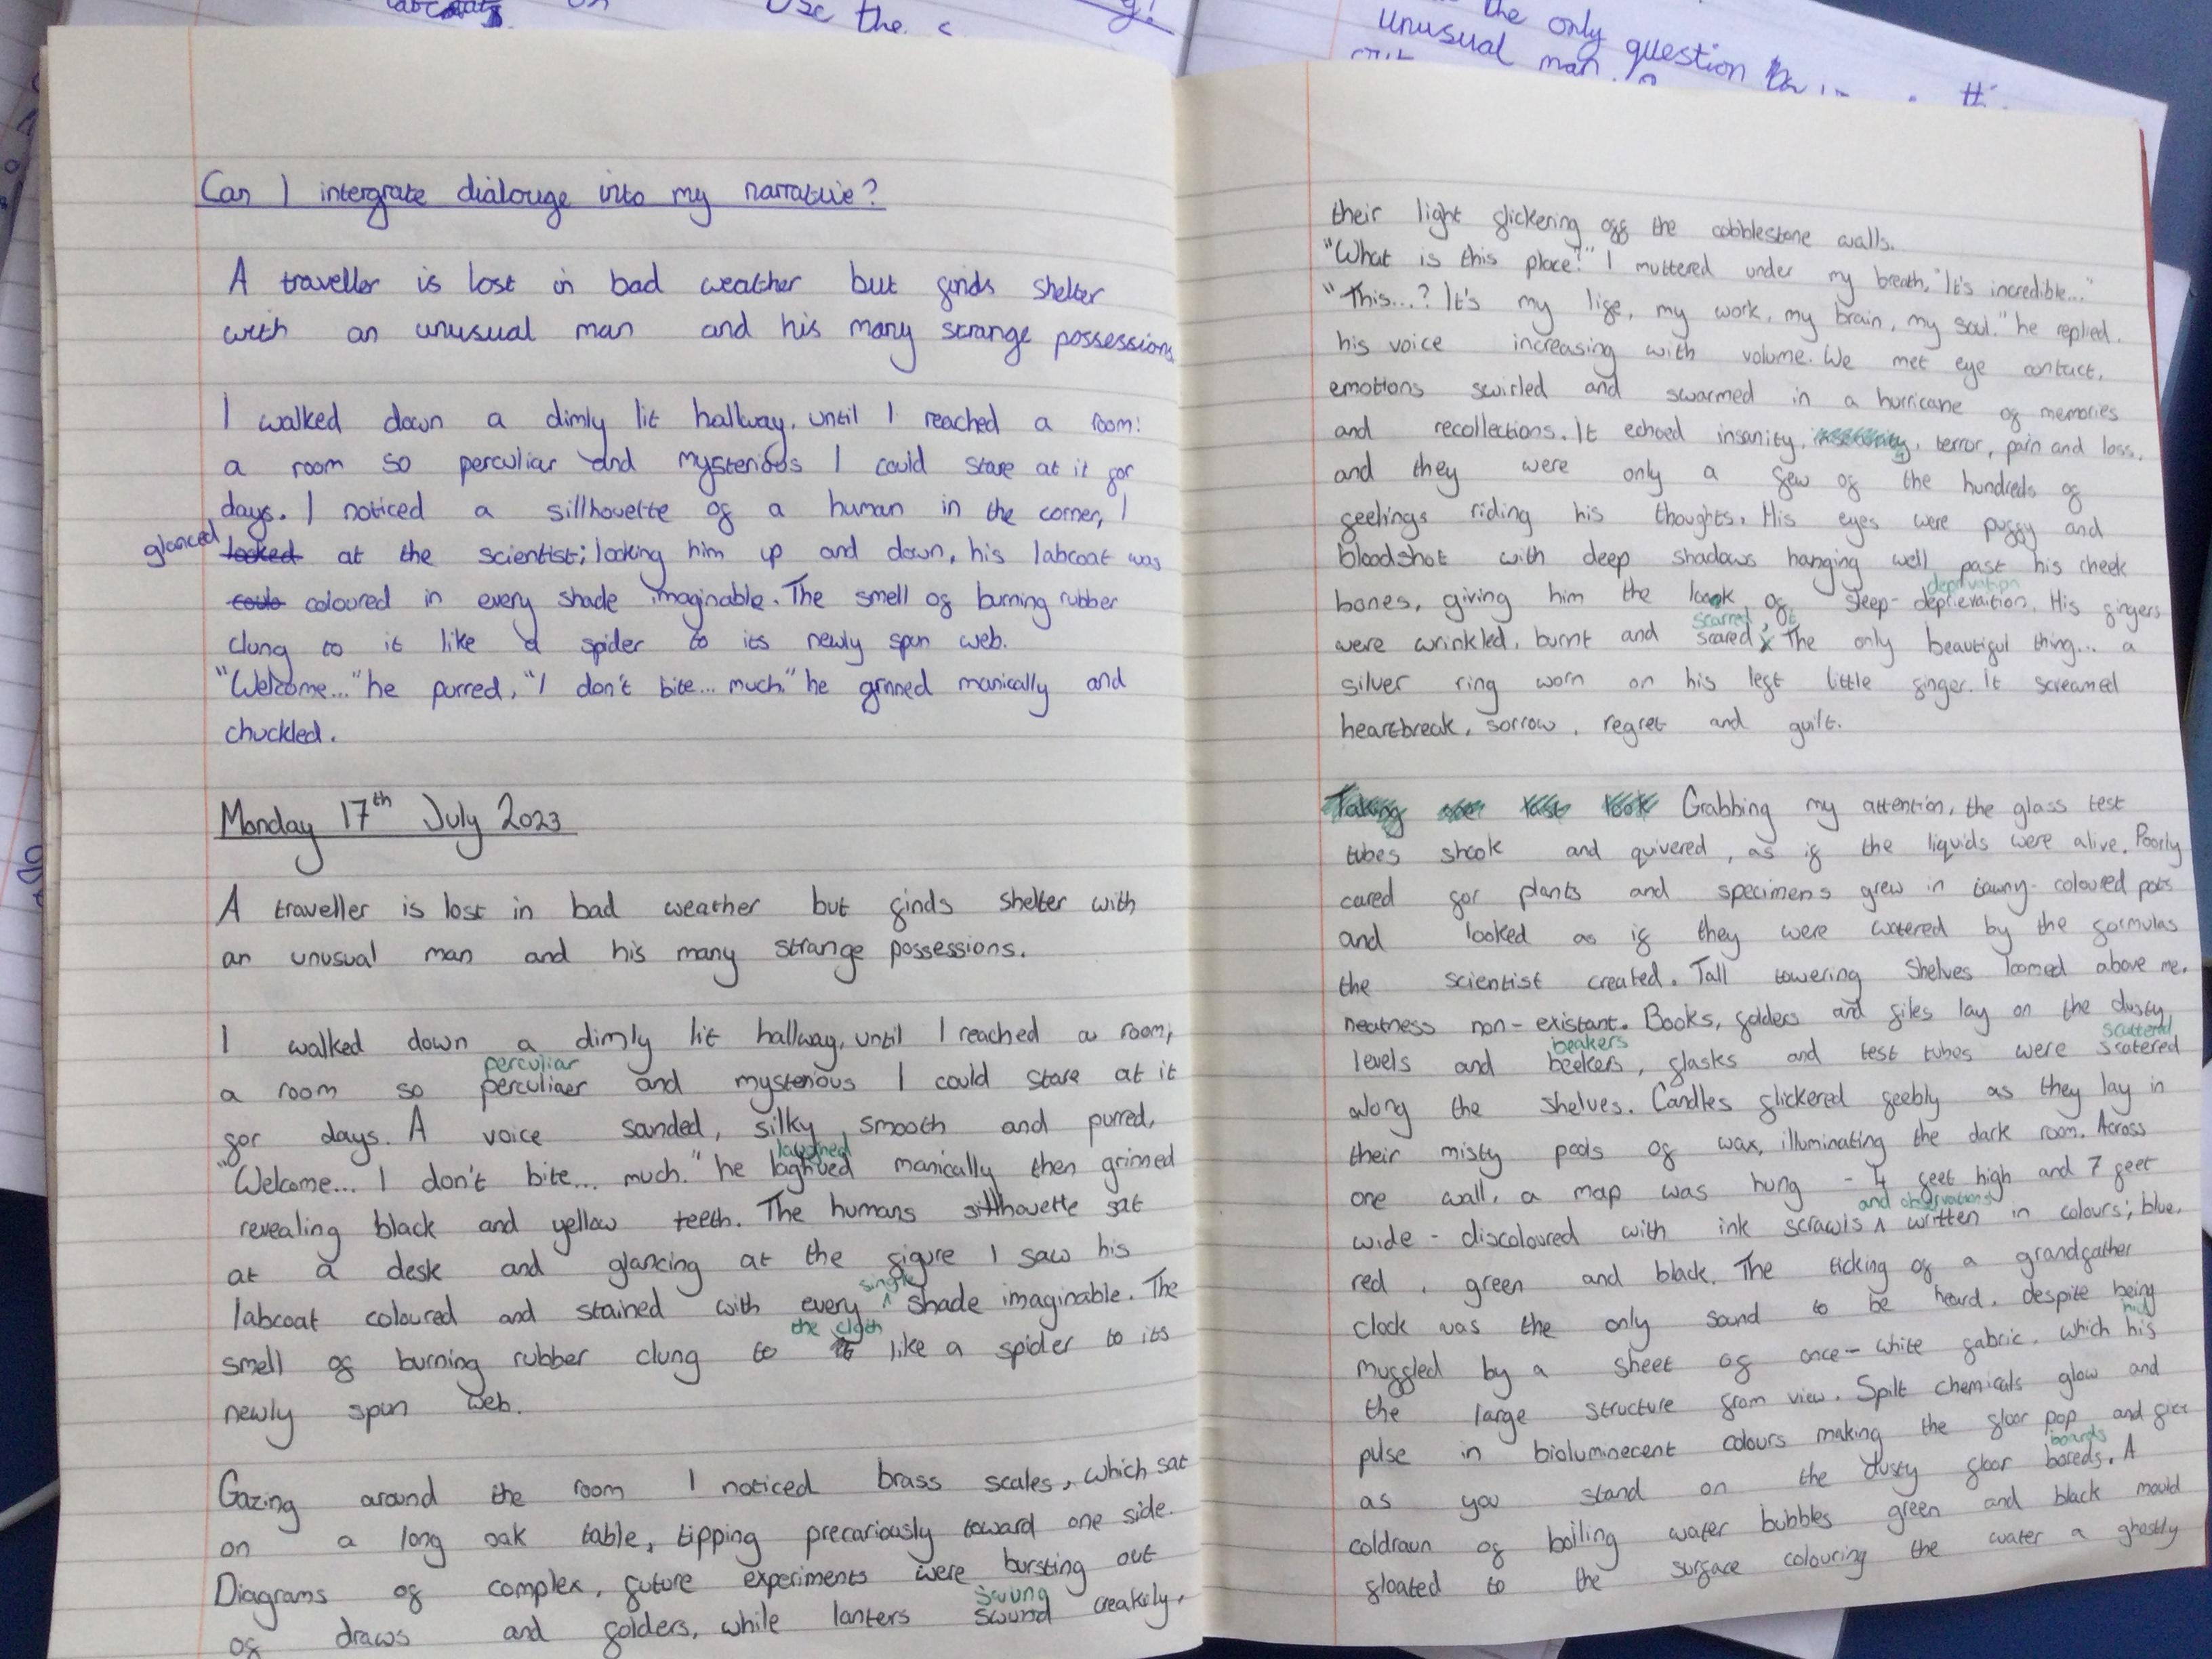 Use the
the only question
unusual man.
Can I intergrate dialouge into my narrative?
A traveller is lost in bad weather but finds shelter
with an unusual man and his many strange possessions
I walked down a dimly lit hallway, until I reached a room:
a room so perculiar and mysterious I could stare at it for
days. I noticed a sillhouette of a human in the corner, I
glanced looked at the scientist; looking him up and down, his labcoat was
coulo coloured in every shade imaginable. The smell of burning rubber
clung to it like a spider to its newly spun web.
"Welcome..." he purred, "I don't bite... much." he grinned manically and
chuckled.
Monday 17th July 2023
A traveller is lost in bad weather but finds shelter with
an unusual man and his many strange possessions.
I walked down a dimly lit hallway, until I reached a room;
perculiar
a room so perculiaer and mysterious I could stare at it
for days. A voice sounded, silky, smooth and purred,
laughed
"Welcome... I don't bite... much." he laghued manically then grinned
revealing black and yellow teeth. The humans sillhouette sat
at a desk and glancing at the figure I saw his
single
labcoat coloured and stained with every ^ shade imaginable. The
the cloth
smell of burning rubber clung to it like a spider to its
newly spun web.
Gazing around the room I noticed brass scales, which sat
on a long oak table, tipping precariously toward one side.
Diagrams of complex, future experiments were bursting out
swung
of draws and folders, while lanters swund creakily,
their light flickering off the cobblestone walls.
"What is this place?" I muttered under my breath, "It's incredible..."
"This...? It's my life, my work, my brain, my soul." he replied.
his voice increasing with volume. We met eye contact,
emotions swirled and swarmed in a hurricane of memories
and recollections. It echoed insanity, terror, pain and loss,
and they were only a few of the hundreds of
feelings riding his thoughts. His eyes were puffy and
bloodshot with deep shadows hanging well past his cheek
deprivation
bones, giving him the look of sleep-deprievaition. His fingers
scarred
were wrinkled, burnt and scared The only beautiful thing... a
silver ring worn on his left little finger. It screamed
heartbreak, sorrow, regret and guilt.
Taking one last look Grabbing my attention, the glass test
tubes shook and quivered, as if the liquids were alive. Poorly
cared for plants and specimens grew in tawny-coloured pots
and looked as if they were watered by the formulas
the scientist created. Tall towering shelves loomed above me,
neatness non-existant. Books, folders and files lay on the dusty
beakers scattered
levels and beekers, flasks and test tubes were scatered
along the shelves. Candles flickered feebly as they lay in
their misty pools of wax, illuminating the dark room. Across
one wall, a map was hung - 4 feet high and 7 feet
and observations
wide - discoloured with ink scrawls ^ written in colours; blue,
red, green and black. The ticking of a grandfather
clock was the only sound to be heard, despite being
hid
muffled by a sheet of once-white fabric, which his
the large structure from view. Spilt chemicals glow and
pulse in bioluminecent colours making the floor pop and fizz
boards
as you stand on the dusty floor boreds. A
coldraun of boiling water bubbles green and black mould
floated to the surface colouring the water a ghostly